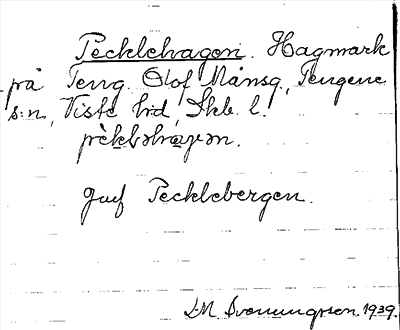 Pecklehagen. Hagmark
på Teng. Olof Månsg., Tengene
s:n, Viste hd, Skb. l.
pèkləhɷɡən.
Jmf Pecklebergen.
1939.